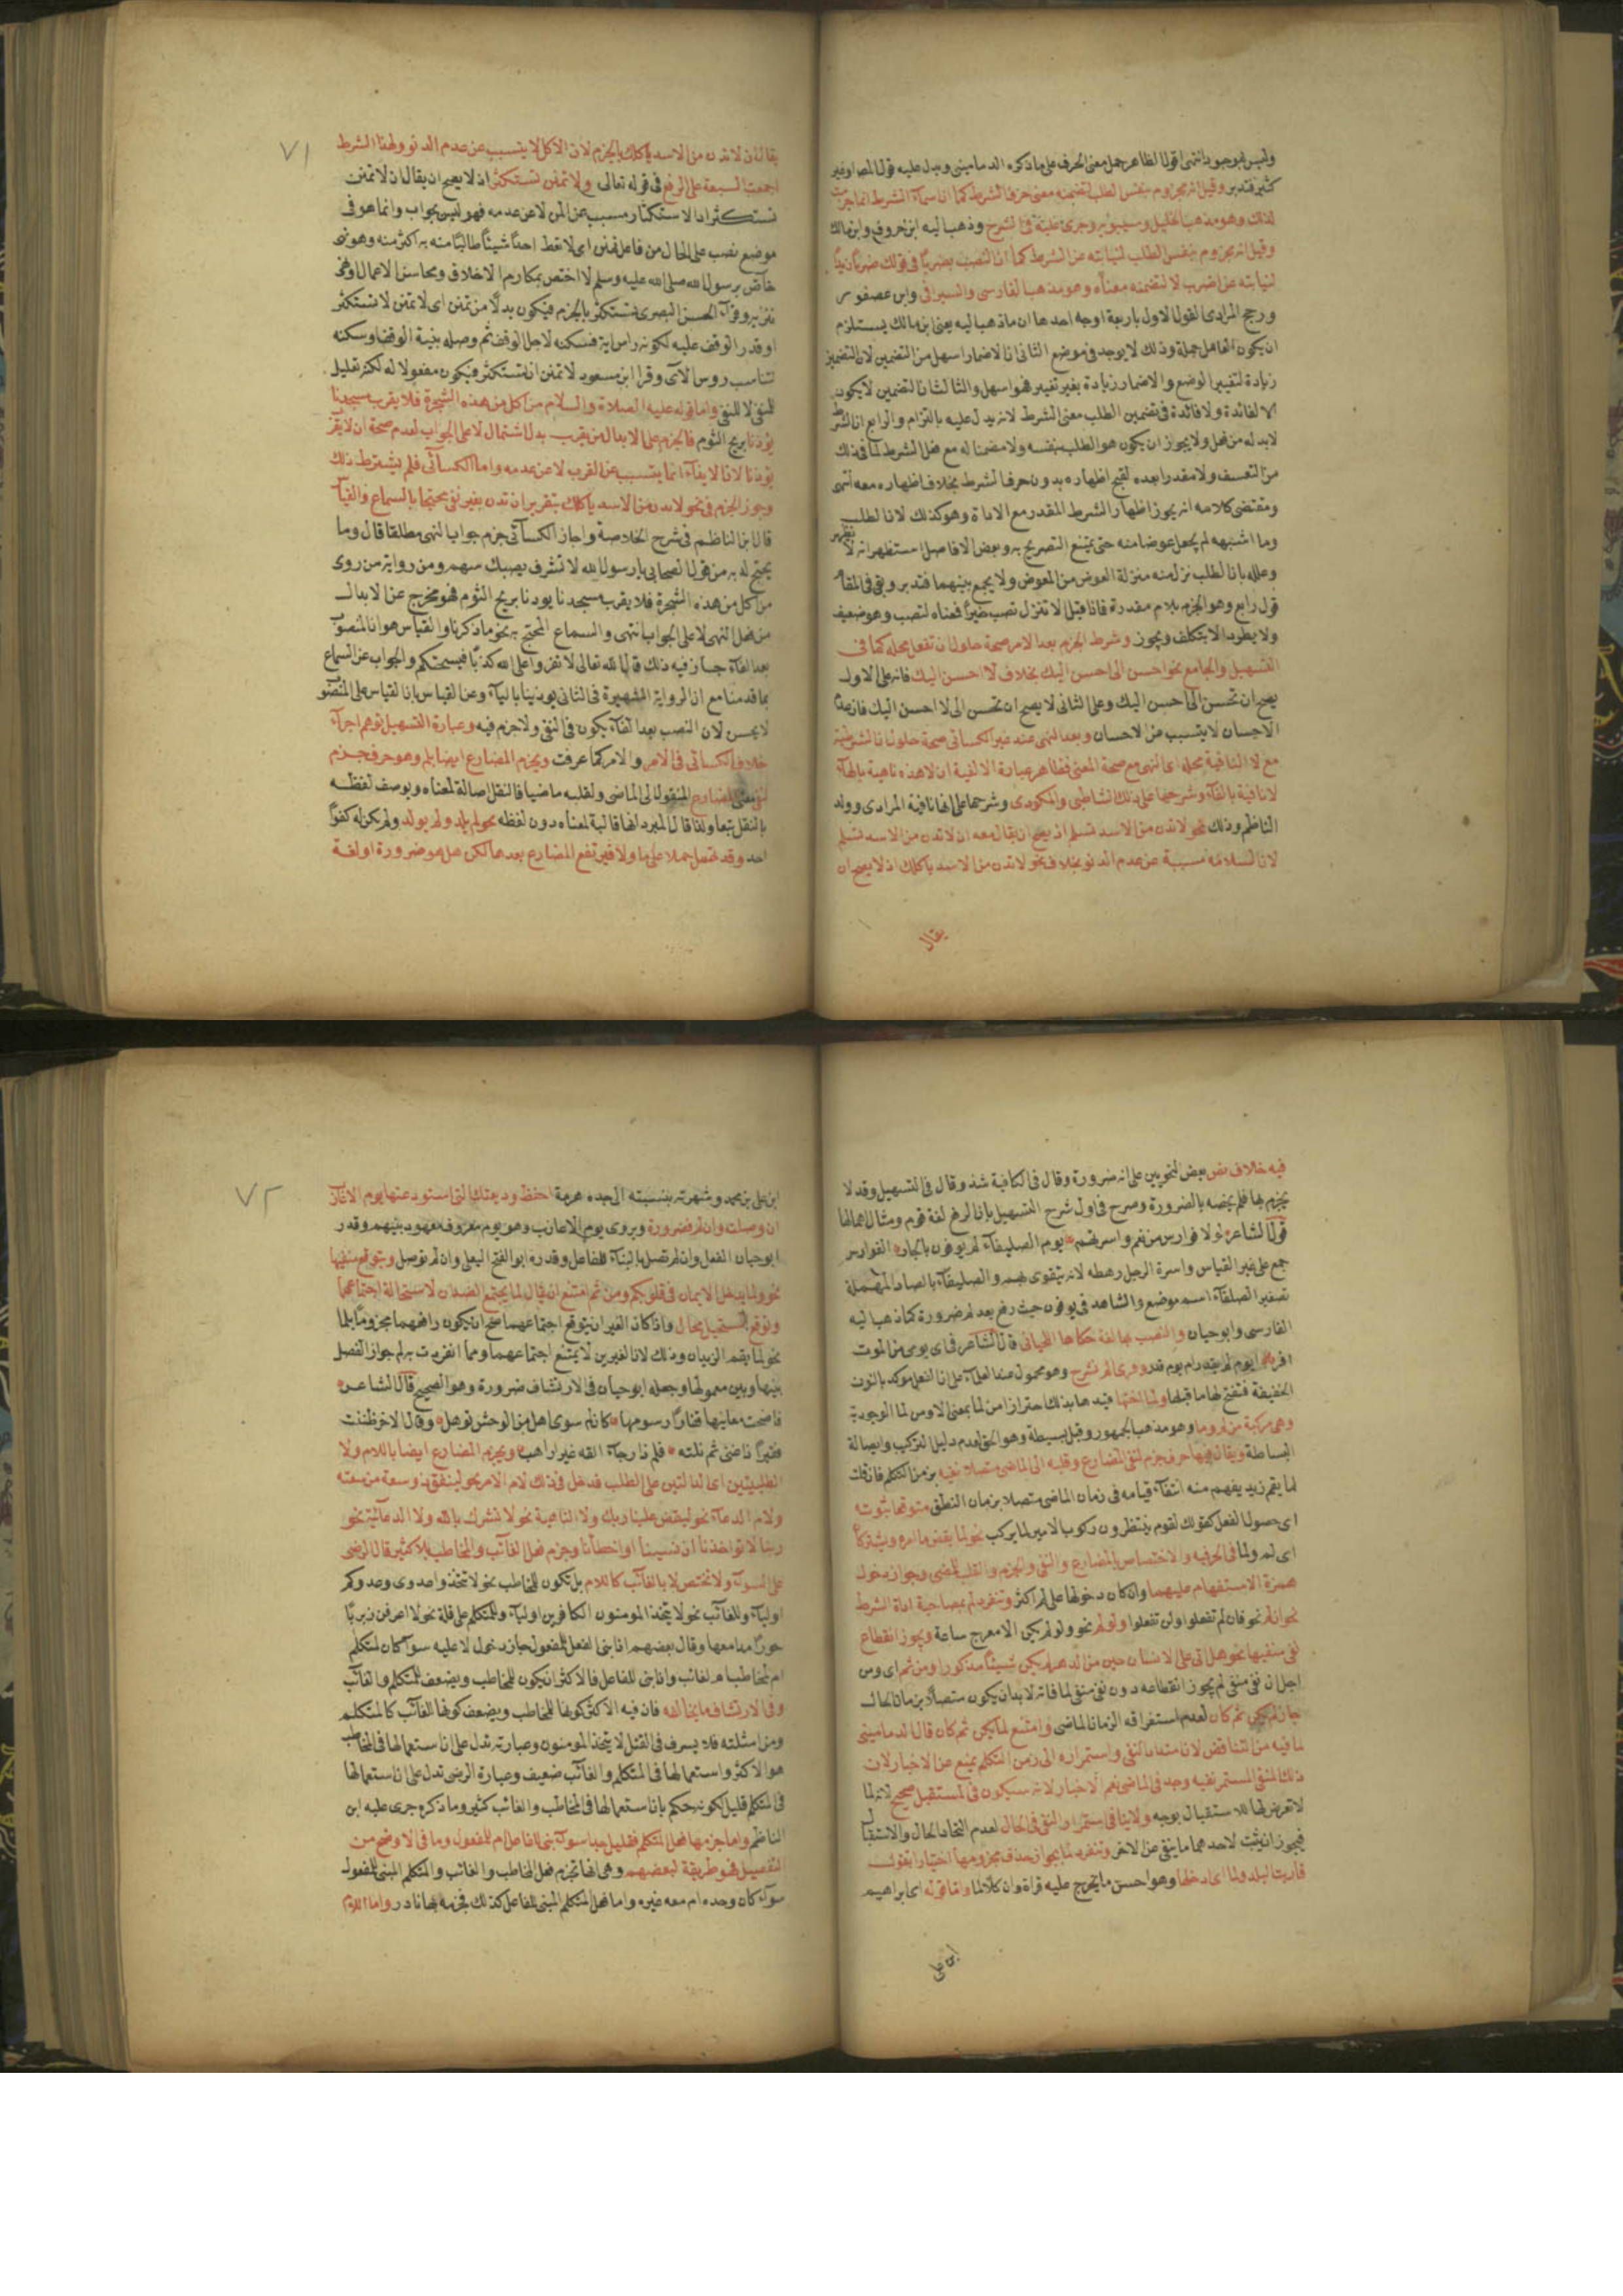 وليس بموجود انتهى اقول الظاهر حمل معنى الحرف على ما ذكره الدماميني ويدل عليه قول المصنف وغير
كثير فتدبر وقيل انه مجزوم بنفس الطلب لتضمنه معنى حرف الشرط كما ان اسماء الشرط انما جزمت
لذلك وهو مذهب الخليل وسيبويه وجرى عليه في الشرح وذهب اليه ابن خروف وابن مالك
وقيل انه مجزوم بنفس الطلب لنيابته عن الشرط كما ان النصب بضربا في قولك ضربا زيدا
لنيابته عن اضرب لا لتضمنه معناه وهو مذهب الفارسي والسيرافي وابن عصفور
ورجح المرادي القول الاول باربعة اوجه احدها ان ما ذهب اليه يعني ابن مالك يستلزم
ان يكون العامل جملة وذلك لا يوجد في موضع الثاني ان الاضمار اسهل من التضمين لان التضمين
زيادة لتغيير الوضع والاضمار زيادة بغير تغيير فهو اسهل والثالث ان التضمين لا يكون
الا لفائدة ولا فائدة في تضمين الطلب معنى الشرط لانه يدل عليه بالتزام والرابع ان الشرط
لابد له من فعل ولا يجوز ان يكون هو الطلب بنفسه ولا مضمنا له مع فعل الشرط لما في ذلك
من التعسف ولا مقدرا بعده لقبح اظهاره بدون حرف الشرط بخلاف اظهاره معه انتهى
ومقتضى كلامه انه يجوز اظهار الشرط المقدر مع الاداة وهو كذلك لان الطلب
وما اشبهه لم يجعل عوضا منه حتى يمتنع التصريح به وبعض الافاضل استظهر انه لا يظهر
وعلله بان الطلب نزل منه منزلة العوض من المعوض ولا يجمع بينهما فتدبر وبقي في المقام
قول رابع وهو الجزم بلام مقدرة فاذا قيل الا تنزل تصب خيرا فمعناه لتصب وهو ضعيف
ولا يطرد الا بتكلف وتجوز وشرط الجزم بعد الامر صحة حلول ان تفعل محله كما في
التسهيل والجامع نحو احسن الى احسن اليك بخلاف لا احسن اليك فانه على الاول
يصح ان تحسن الى احسن اليك وعلى الثاني لا يصح ان تحسن الى لا احسن اليك فان عدم
الاحسان لا يتسبب عن الاحسان وبعد النهي عند غير الكسائي صحة حلول ان الشرطية
مع لا النافية محله اى النهى مع صحة المعنى فظاهر عبارة الالفية ان لا هذه ناهية بالهاء
لا نافية بالفاء وشرحها على ذلك الشاطبي والمكودي وشرحها على انها نافية المرادي وولد
الناظم وذلك نحو لا تدن من الاسد تسلم اذ يصح ان يقال معه ان لا تدن من الاسد تسلم
لان السلامة مسببة عن عدم الدنو بخلاف نحو لا تدن من الاسد ياكلك اذ لا يصح ان
يقال
٧١
يقال ان لا تدن من الاسد ياكلك بالجزم لان الاكل لا يتسبب عن عدم الدنو ولهذا الشرط
اجمعت السبعة على الرفع في قوله تعالى ولا تمنن تستكثر اذ لا يصح ان يقال ان لا تمنن
تستكثر اذ الاستكثار مسبب عن المن لا عن عدمه فهو ليس بجواب وانما هو في
موضع نصب على الحال من فاعل تمنن اى لا تعط احدا شيئا طالبا منه به اكثر منه وهو نهى
خاص برسول الله صلى الله عليه وسلم لا اختص بمكارم الاخلاق ومحاسن الاعمال او نهى
تنزيه وقراءة الحسن البصرى تستكثر بالجزم فيكون بدلا من تمنن اى لا تمنن لا تستكثر
او قدر الوقف عليه لكونه راس اية فسكنه لاجل الوقف ثم وصله بنية الوقف او سكنه
لتناسب روس الاى وقرا ابن مسعود لا تمنن ان تستكثر فيكون مفعولا له لكنه تعليل
للمنفى لا للنفى واما قوله عليه الصلاة والسلام من اكل من هذه الشجرة فلا يقرب مسجدنا
يؤذنا بريح الثوم فالجزم على الابدال من يقرب بدل اشتمال لا على الجواب لعدم صحة ان لا يقرب
يؤذنا لان الايذاء انما يتسبب عن القرب لا عن عدمه واما الكسائى فلم يشترط ذلك
وجوز الجزم في نحو لا تدن من الاسد ياكلك بتقدير ان تدن بغير نفى محتجا بالسماع والقياس
قال ابن الناظم في شرح الخلاصة واجاز الكسائى جزم جواب النهى مطلقا قال وما
يحتج له به من قول الصحابي يا رسول الله لا تشرف يصبك سهم ومن رواية من روى
من اكل من هذه الشجرة فلا يقرب مسجدنا يوذنا بريح الثوم فهو مخرج عن الابدال
من فعل النهى لا على الجواب انتهى والسماع المحتج به نحو ما ذكرنا والقياس هو ان المنصوب
بعد الفاء جاز فيه ذلك قال الله تعالى لا تفتروا على الله كذبا فيسحتكم والجواب عن السماع
بما قدمنا مع ان الرواية المشهورة في الثاني يوذينا بالياء وعن القياس بان القياس على المنصوب
لا يحسن لان النصب بعد الفاء يكون في النفى ولا جزم فيه وعبارة التسهيل توهم اجراء
خلاف الكسائى في الامر والامر كما عرفت ويجزم المضارع ايضا بلم وهو حرف جزم
لنفى معنى المضارع المنقول الى الماضى ولقلبه ماضيا فالنقل اصالة لمعناه ويوصف لفظه
بالنقل تبعا ولذا قال المبرد انها قالبة لمعناه دون لفظه نحو لم يلد ولم يولد ولم يكن له كفوا
احد وقد تهمل حملا على ما ولا فيرتفع المضارع بعدها لكن هل هو ضرورة او لغة
فيه خلاف نص بعض النحويين على انه ضرورة وقال في الكافية شذ وقال في التسهيل وقد لا
يجزم بها فلم يخصه بالضرورة وصرح في اول شرح التسهيل بان الرفع لغة قوم ومثال اهمالها
قول الشاعر لولا فوارس من نعم واسرتهم يوم الصليفاء لم يوفون بالجار الفوارس
جمع على غير القياس واسرة الرجل رهطه لانه يتقوى بهم والصليفاء بالصاد المهملة
تصغير الصلفاء اسم موضع والشاهد في يوفون حيث رفع بعد لم ضرورة كما ذهب اليه
الفارسى وابو حيان والنصب بها لغة حكاها اللحيانى قال الشاعر في اى يومى من الموت
افر ايوم لم يقدر ام يوم قدر وقرئ الم نشرح وهو محمول عند العلماء على ان الفعل موكد بالنون
الخفيفة ففتح لها ما قبلها ولما اختها قيد هابذلك احترازا من لما بمعنى الا ومن لما الوجودية
وهى مركبة من لم وما وهو مذهب الجمهور وقيل بسيطة وهو الحق لعدم دليل التركيب واصالة
البساطة ويقال فيها حرف جزم لنفى المضارع وقلبه الى الماضى متصلا نفيه بزمن التكلم فاذا قلت
لما يقم زيد يفهم منه انتفاء قيامه في زمان الماضى متصلا بزمان النطق متوقعا ثبوته
اى حصول الفعل كقولك لقوم ينتظرون ركوب الامير لما يركب نحو لما يقض ما امره ويشتركا
اى لم ولما في الحرفية والاختصاص بالمضارع والنفى والجزم والقلب للمضى وجواز دخول
همزة الاستفهام عليهما وان كان دخولها على لم اكثر وتنفرد لم بمصاحبة اداة الشرط
نحو ان لم نحو فان لم تفعلوا ولن تفعلوا ولو لم نحو ولو لم يكن الا معرج ساعة ويجوز انقطاع
نفى منفيها نحو هل اتى على الانسان حين من الدهر لم يكن شيئا مذكورا ومن ثم اى ومن
اجل ان نفى منفى لم يجوز انقطاعه دون نفى منفى لما فانه لابد ان يكون متصلا بزمان الحال
جاز لم يكن ثم كان لعدم استغراقه الزمان الماضى وامتنع لما يكن ثم كان قال الدمامينى
لما فيه من التناقض لان امتداد النفى واستمراره الى زمن التكلم يمنع عن الاخبار لان
ذلك المنفى المستمر نفيه وجد في الماضى نعم الاخبار لانه سيكون في المستقبل صحيح لانه لما
لا تعرض لها للاستقبال بوجه ولا ينافي استمرار النفى في الحال لعدم اتحاد الحال والاستقبال
فيجوز ان يثبت لاحدهما ما ينفى عن الاخر وتنفرد لما بجواز حذف مجزومها اختيارا تقول
قاربت البلد ولما اى ادخلها وهو احسن ما يخرج عليه قراءة وان كلا لما واما قوله اى ابراهيم
ابن على
٧٢
ابن على بن محمد وشهرته بنسبته الى جده هرمة احفظ وديعتك التى استودعتها يوم الاعازب
ان وصلت وان لم فضرورة ويروى يوم الاعازب وهو يوم معروف معهود بينهم وقدر
ابو حيان الفعل وان لم تصل بالبناء للفاعل وقدره ابو الفتح البعلى وان لم توصل وبتوقع منفيها
نحو ولما يدخل الايمان في قلوبكم ومن ثم امتنع ان يقال لما يجتمع الضدان لاستحالة اجتماعهما
وتوقع المستحيل محال واذا كان الغير ان يتوقع اجتماعهما صح ان يكون رافعهما مجزوما بلما
نحو لما يقم الزيدان وذلك لان الغيرين لا يمتنع اجتماعهما ومما انفردت به لم جواز الفصل
بينها وبين معمولها وجعله ابو حيان في الارتشاف ضرورة وهو الصحيح قال الشاعر
فاضحت مغانيها قفارا رسومها كان لم سوى اهل من الوحش توهل وقال الاخر ظننت
فقيرا ذا غنى ثم نلته فلم ذا رجاء القه غير واهب ويجزم المضارع ايضا باللام ولا
الطلبيتين اى الدالتين على الطلب فدخل في ذلك لام الامر نحو لينفق ذو سعة من سعته
ولام الدعاء نحو ليقض علينا ربك ولا الناهية نحو لا تشرك بالله ولا الدعائية نحو
ربنا لا تواخذنا ان نسينا او اخطانا وجزم فعل الغائب والمخاطب بلا كثير قال الرضى
على السواء ولا تختص لا بالغائب كاللام بل تكون للمخاطب نحو لا تتخذوا عدوى وعدوكم
اولياء وللغائب نحو لا يتخذ المومنون الكافرين اولياء وللمتكلم على قلة نحو لا اعرفن ربربا
حورا مدامعها وقال بعضهم اذا بنى الفعل للمفعول جاز دخول لا عليه سواء كان لمتكلم
ام لمخاطب ام لغائب واذا بنى للفاعل فالاكثر ان يكون للمخاطب ويضعف للمتكلم والغائب
وفى الارتشاف ما يخالفه فان فيه الاكثر كونها للمخاطب ويضعف كونها للغائب كالمتكلم
ومن امثلته فلا يسرف في القتل لا يتخذ المومنون وعبارته تدل على ان استعمالها في المخاطب
هو الاكثر واستعمالها في المتكلم والغائب ضعيف وعبارة الرضى تدل على ان استعمالها
فى المتكلم قليل لكونه حكم بان استعمالها في المخاطب والغائب كثير وما ذكره جرى عليه ابن
الناظم واما جزمها فعل المتكلم فقليل جدا سواء بنى للفاعل ام للمفعول وما في الاوضح من
التفصيل فهو طريقة لبعضهم وهى انها تجزم فعل المخاطب والغائب والمتكلم المبنى للمفعول
سواء كان وحده ام معه غيره واما فعل المتكلم المبنى للفاعل كذلك فجزمه بها نادر واما اللام